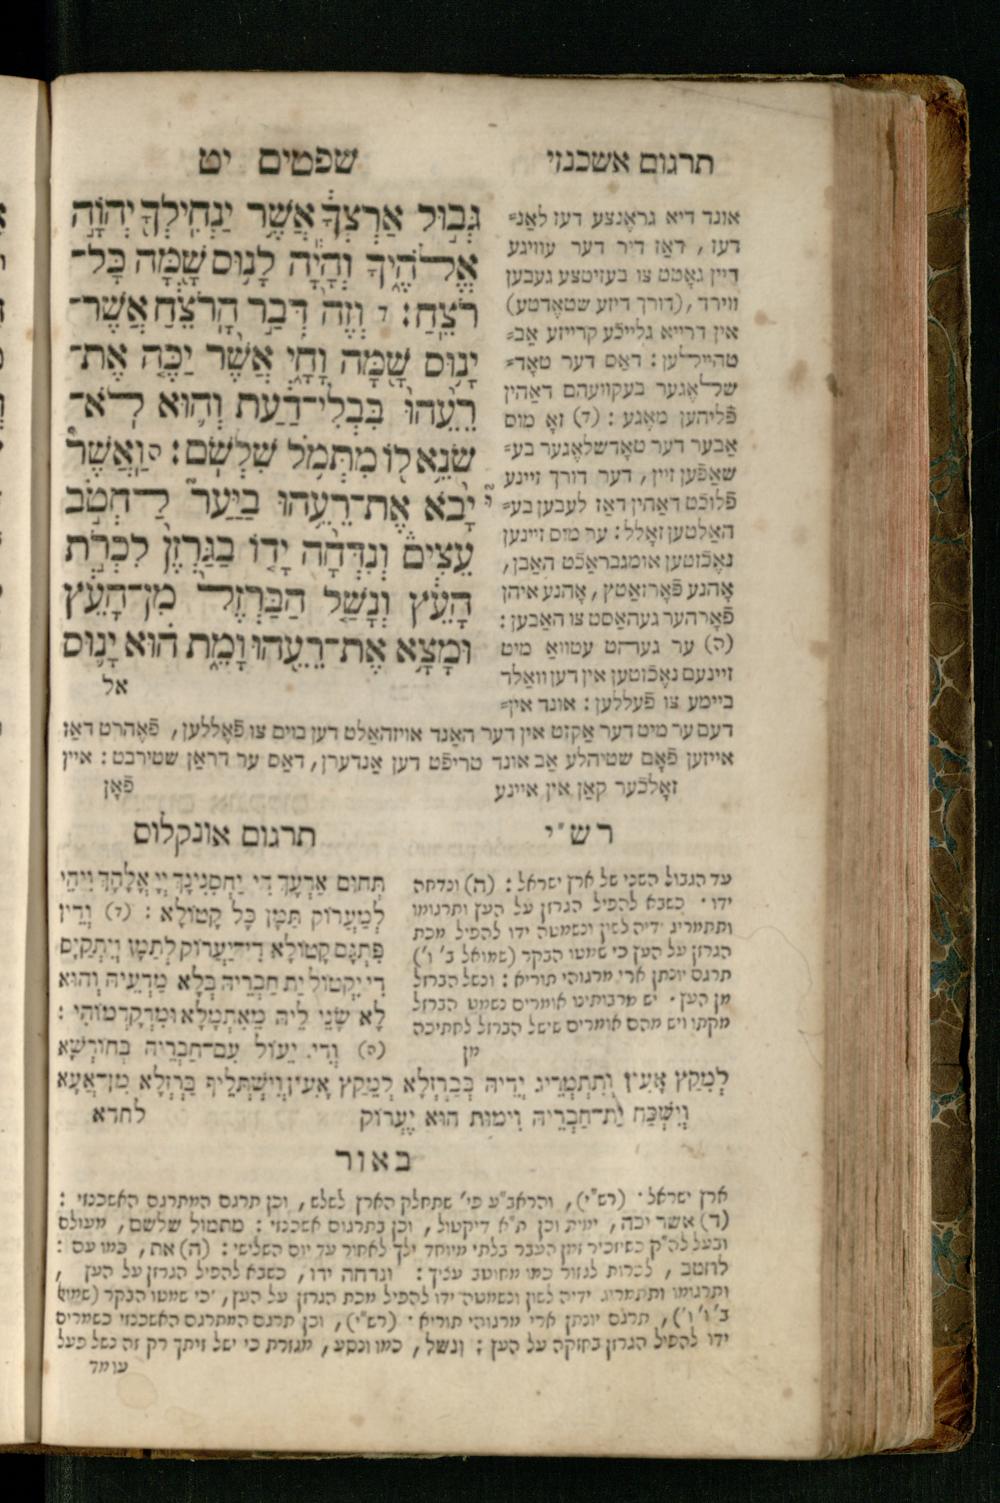 תרגום אשכנזי
שפטים יט
גְּב֣וּל אַרְצְךָ֔ אֲשֶׁ֥ר יַנְחִֽילְךָ֖ יְהֹוָ֣ה
אֱלֹהֶ֑יךָ וְהָיָ֕ה לָנ֥וּס שָׁ֖מָּה כָּל־
רֹצֵֽחַ׃ ד וְזֶה֙ דְּבַ֣ר הָרֹצֵ֔חַ אֲשֶׁר־
יָנ֥וּס שָׁ֖מָּה וָחָ֑י אֲשֶׁ֨ר יַכֶּ֤ה אֶת־
רֵעֵ֙הוּ֙ בִּבְלִי־דַ֔עַת וְה֛וּא לֹא־
שֹׂנֵ֥א ל֖וֹ מִתְּמֹ֥ל שִׁלְשֹֽׁם׃ ה וַאֲשֶׁר֩
יָבֹ֨א אֶת־רֵעֵ֥הוּ בַיַּ֘עַר֮ לַחְטֹ֣ב
עֵצִים֒ וְנִדְּחָ֨ה יָד֤וֹ בַגַּרְזֶן֙ לִכְרֹ֣ת
הָעֵ֔ץ וְנָשַׁ֤ל הַבַּרְזֶל֙ מִן־הָעֵ֔ץ
וּמָצָ֥א אֶת־רֵעֵ֖הוּ וָמֵ֑ת ה֗וּא יָנ֛וּס
אל
אונד דיא גראֶנצע דעז לאַנ=
דעז, דאַז דיר דער עוויגע
דיין גאָטט צו בעזיטצע געבען
ווירד, (דורך דיזע שטאֶדטע)
אין דרייא גלייכֿע קרייזע אַב=
טהיילען: דאַס דער טאָד=
שלאֶגער בעקוועהם דאַהין
פֿליהען מאֶגע: (ד) זאָ מוס
אַבער דער טאָדשלאֶגער בע=
שאַפֿען זיין, דער דורך זיינע
פֿלוכֿט דאַהין דאַז לעבען בע=
האַלטען זאָלל: ער מוס זיינען
נאֶכֿזטען אומגבראַכֿט האַבן,
אָהנע פֿאָרזאַטץ, אָהנע איהן
פֿאָרהער געהאַסט צו האַבען:
(ה) ער געהט עטוואַ מיט
זיינעם נאֶכֿזטען אין דען וואַלד
ביימע צו פֿעללען: אונד אינ=
דעם ער מיט דער אַקזט אין דער האַנד אויזהאָלט דען בוים צו פֿאֶללען, פֿאֶהרט דאַז
אייזען פֿאָם שטיהלע אַב אונד טריפֿט דען אַנדערן, דאַס ער דראַן שטירבט: איין
זאָלכֿער קאַן אין איינע
פֿאָן
רש"י
עד הגבול השני של ארץ ישראל: (ה) ונדחה
ידו. כשבא להפיל הגרזן על העץ ותרגומו
ותתמריג ידיה לשון ונשמטה ידו להפיל מכת
הגרזן על העץ כי שמטו הבקר (שמואל ב' ו')
תרגם יונתן ארי מרגוהי תוריא: ונשל הברזל
מן העץ. יש מרבותינו אומרים נשמט הברזל
מקתו ויש מהם אומרים שישל הברזל לחתיכה
מן
תרגום אונקלוס
תְּחוּם אַרְעָךְ דִּי יַחְסְנִינָךְ יְיָ אֱלָהָךְ וִיהֵי
לְמֵעֲרוֹק תַּמָּן כָּל קָטוֹלָא: (ד) וְדֵין
פִּתְגָּם קָטוֹלָא דִּי־יֵעֲרוֹק לְתַמָּן וְיִתְקַיָּם
דִּי יִקְטוֹל יַת חַבְרֵיהּ בְּלָא מַדְעֵיהּ וְהוּא
לָא שָׂנֵי לֵיהּ מֵאִתְמָלָא וּמִדְּקַדְמוֹהִי:
(ה) וְדִי יֵעוֹל עִם־חַבְרֵיהּ בְּחוֹרְשָׁא
לְמִקַּץ אָעִין וְתִתְמְרֵיג יְדֵיהּ בְּבַרְזְלָא לְמִקַּץ אָעִין וְיִשְׁתְּלֵיף בַּרְזְלָא מִן־אָעָא
וְיַשְׁכַּח יַת־חַבְרֵיהּ וִימוּת הוּא יֵעֲרוֹק
לחדא
באור
ארץ ישראל. (רש"י), והראב"ע פי' שתחלק הארץ לשלש, וכן תרגם המתרגם האשכנזי:
(ד) אשר יכה, ימית וכן ת"א דיקטול, וכן בתרגום אשכנזי: מתמול שלשם, מעולם
ובעל לה"ק כשיזכיר זמן העבר בלתי מיוחד ילך לאחור עד יום השלישי: (ה) את, כמו עם:
לחטב, לכרות לגזור כמו מחוטב עציך: ונדחה ידו, כשבא להפיל הגרזן על העץ,
ותרגומו ותתמריג ידיה לשון ונשמטה ידו להפיל מכת הגרזן על העץ, כי שמטו הבקר (שמואל
ב' ו' ו'), תרגם יונתן ארי מרגוהי תוריא. (רש"י), וכן תרגם המתרגם האשכנזי כשמרים
ידו להפיל הגרזן בחזקה על העץ: ונשל, כמו ונסע, מגזרת כי ישל זיתך רק זה נשל פעל
עומד